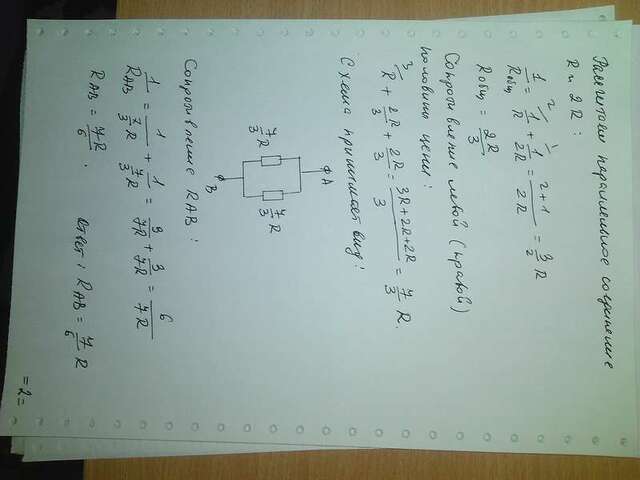 Рассчитаем параллельное соединение
R и 2R:
1/Rобщ = 1/R + 1/2R = 2+1/2R = 3/2 R
Rобщ = 2R/3.
Сопротивление левой (правой)
половины цепи:
R + 2R/3 + 2R/3 = 3R+2R+2R/3 = 7/3 R.
Схема принимает вид:
A
7/3 R
7/3 R
B
Сопротивление RAB:
1/RAB = 1/7/3R + 1/7/3R = 3/7R + 3/7R = 6/7R
RAB = 7R/6.
Ответ: RAB = 7/6 R
=2=